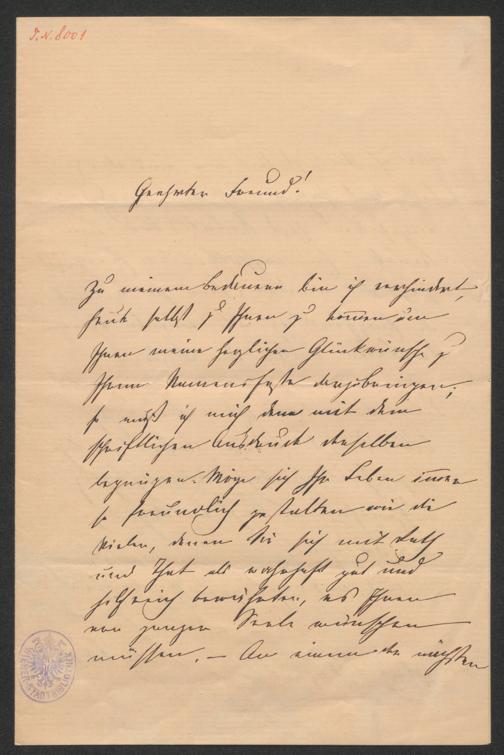 J.N. 8001
Geehrter Freund!
Zu meinem bedauern bin ich verhindert,
heute selbst zu Ihnen zu kommen um
Ihnen meine herzlichen Glückwünsche zu
Ihrem Namensfeste darzubringen;
so muß ich mich denn mit dem
schriftlichen Ausdruck derselben
begnügen. Möge sich Ihr Leben immer
so freundlich gestalten wie die
Vielen, denen Sie sich mit Rath
und That als wahrhaft gut und
hilfreich bewährten, es Ihnen
von ganzer Seele wünschen
müssen. – An einem der nächsten